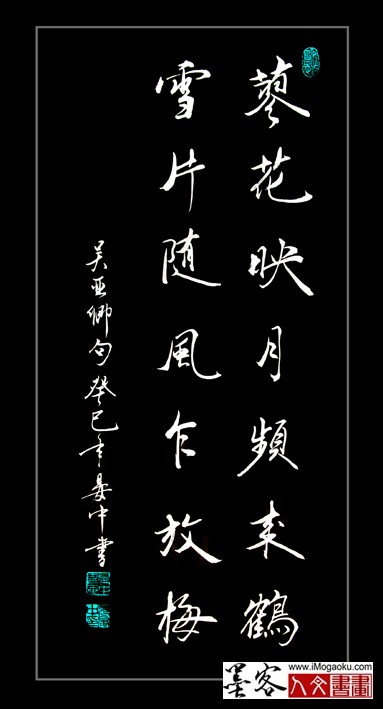 蓼花映月频来鹤
雪片随風乍放梅
吴亚卿句癸巳年晏中書
墨客
www.iMogaoku.com
人文書畫